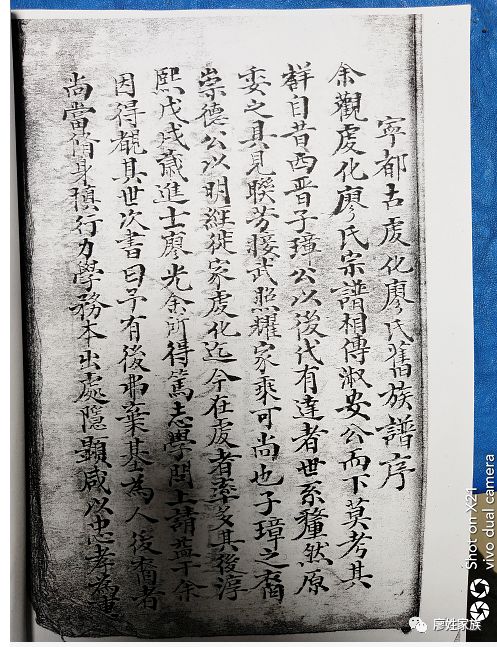 寧都古虔化廖氏舊族譜序
余觀虔化廖氏宗譜相傳淑安公而下莫考其
詳自昔西晋子璋公以後代有達者世系釐然原
委之具見聯芳接武照耀家乘可尚也子璋之裔
崇德公以明經徙家虔化迄今在虔者率多其後淳
熙戊戌歲進士廖光余所得篤志學問上請益于余
因得覩其世次書曰予有後弗棄基為人後裔者
尚當脩身積行力學務本出處隱顯咸以忠孝為重
廖姓家族
Shot on X21
vivo dual camera